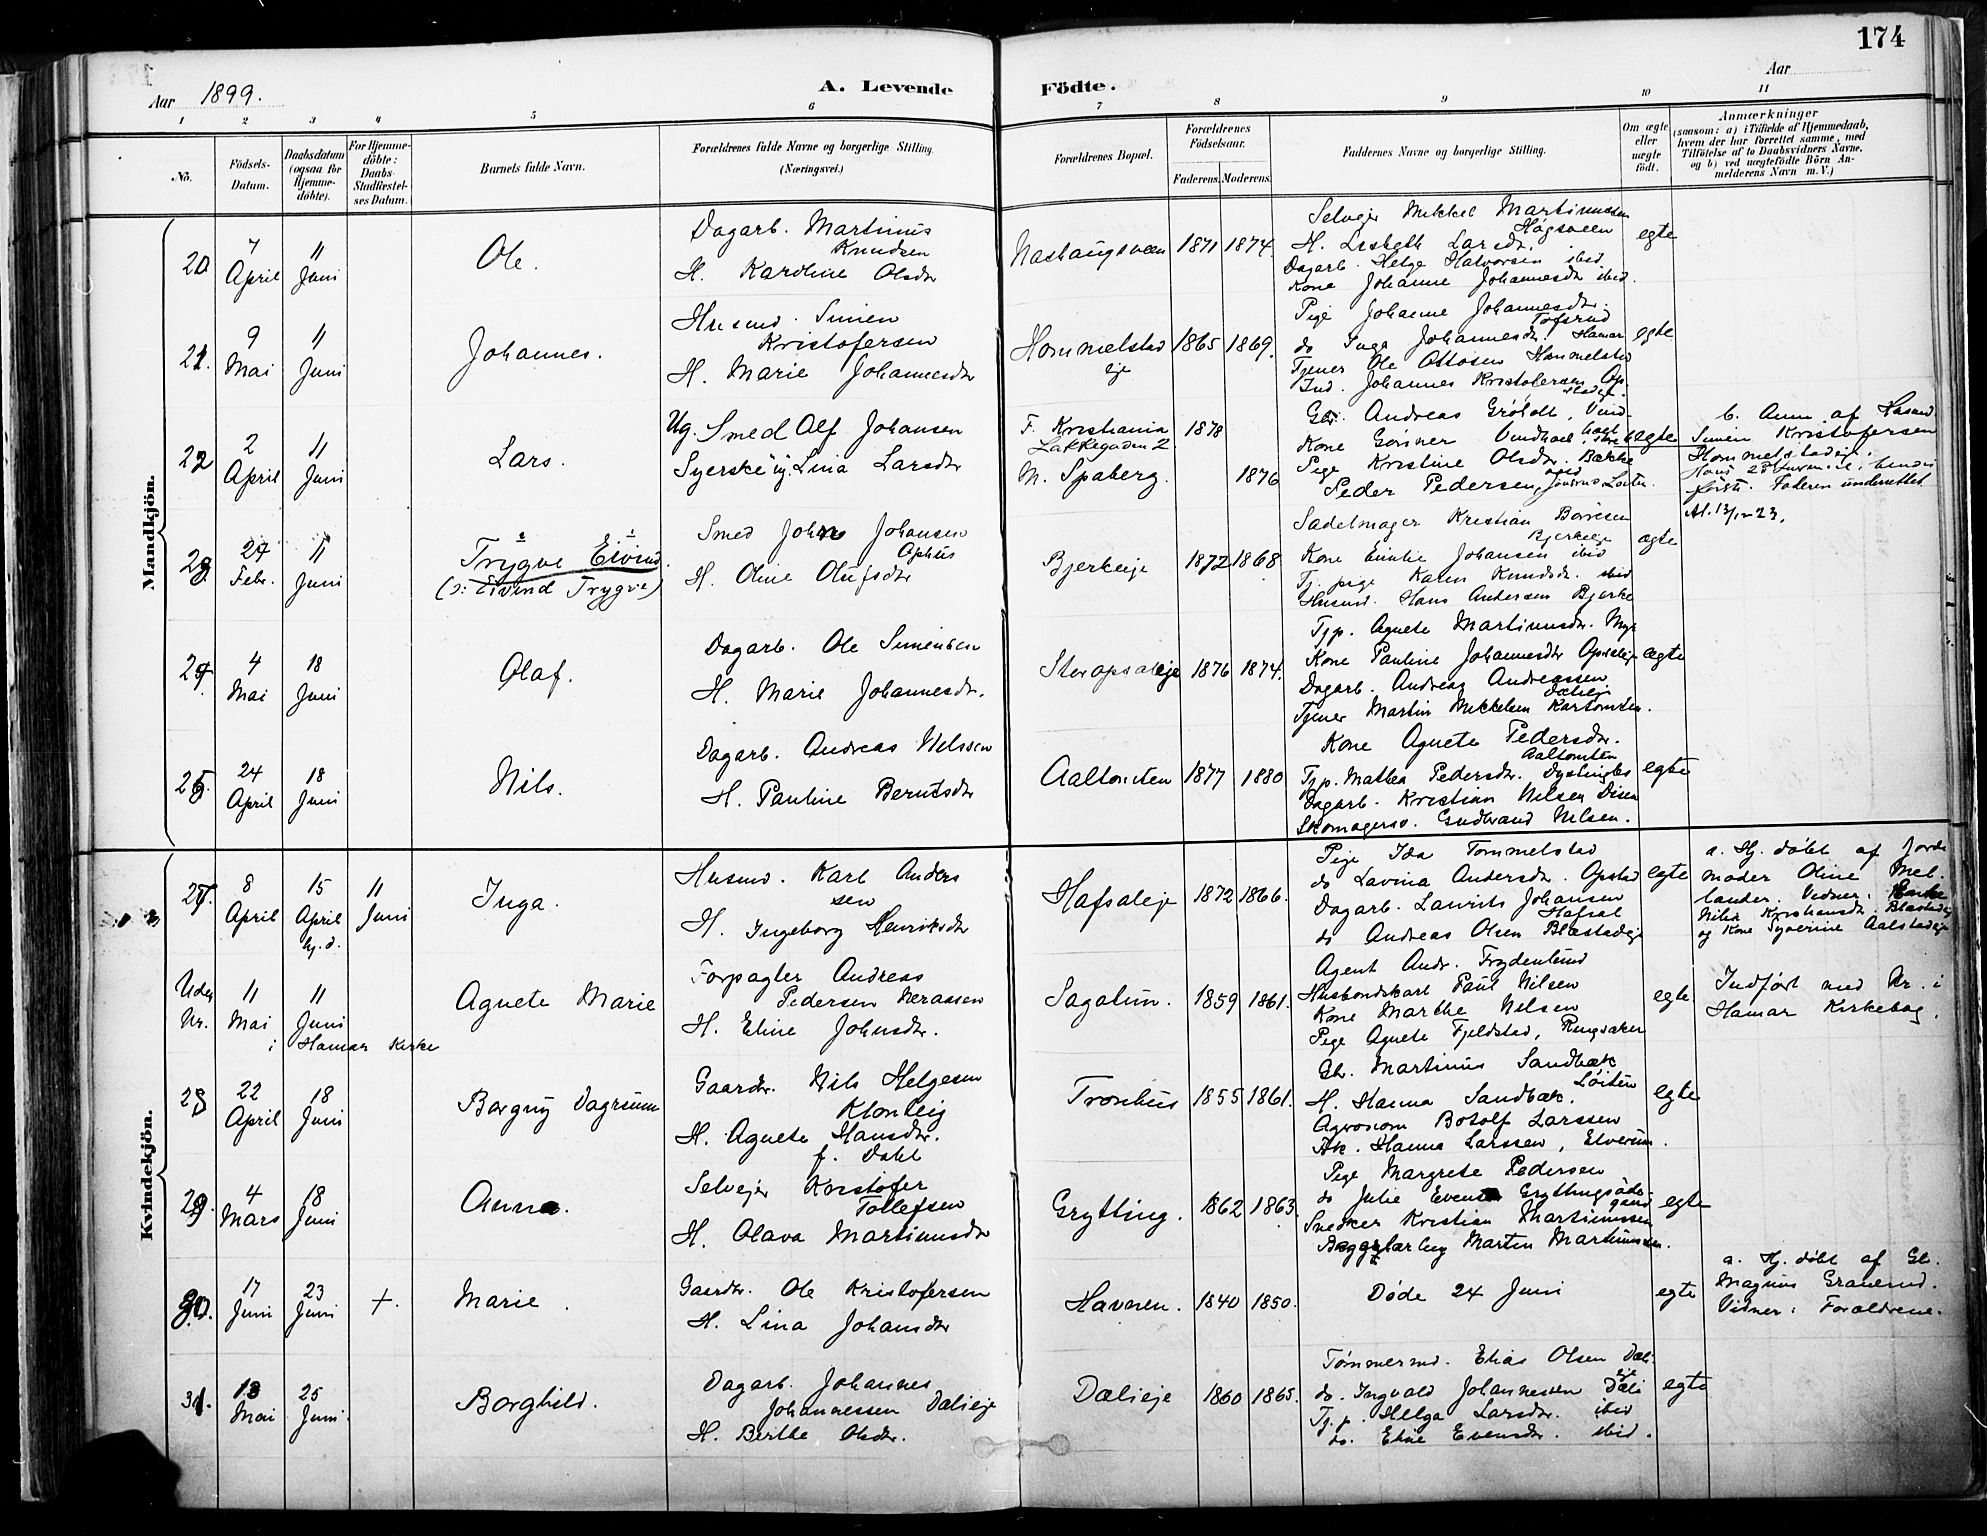 174
Aar 1899.
A. Levende
Födte.
Aar
1 2 3 4 5 6 7 8 9 10 11
No.
Födsels-Datum.
Daabsdatum (ogsaa for Hjemme-döbte).
For Hjemme-döbte: Daabs-Stadfæstel-ses Datum.
Barnets fulde Navn.
Forældrenes fulde Navne og borgerlige Stilling.
(Næringsvei.)
Forældrenes Bopæl.
Forældrenes Födselsaar.
Faderens. Moderens.
Faddernes Navne og borgerlige Stilling.
Om ægte eller uægte födt.
Anmærkninger
(saasom: a) i Tilfælde af Hjemmedaab,
hvem der har forrettet samme, med
Tilföielse af to Daabsvidners Navne,
og b) ved uægtefödte Börn An-
melderens Navn m. V.)
Mandkjön.
20 7 April 11 Juni
Ole.
Dagarb. Martinus
Knudsen
H. Karoline Olsdtr
Nashaugsveen 1871 1874.
Selveier Mikkel Martinusen
Høgsveen
H. Lisbeth Larsdr.
Dagarb. Helge Halvorsen ibid
Kone Johanne Johannesdr ibid.
egte
21. 9 Mai 11 Juni
Johannes.
Husmd. Simen
Kristofersen
H. Marie Johannesdtr
Hommelstad
eje
1865 1869.
Pige Johanne Johannesdtr.
Tofsrud
do Inga Johannesdr. Hamar
Tjener Ole Ottosen Hommelstad
Ind. Johannes Kristofersen Op-
stadeje.
egte
22 2 April 11 Juni
Lars.
Ug. Smed Alf Johansen
Syerske ug. Lina Larsdtr
F. Kristiania
Lakkegaden 2
M. Spaberg.
1878
1876
Gbr. Andreas
Kone
Pige Kristine Olsdr. Bække
Peder Pedersen, Løiten.
uegte
b. Anm af Husmd.
Simen Kristofersen
Hommelstadeje.
Hans 2den
første. Faderen underrettet
Al. 13/12 23.
28. 24 Febr. 11 Juni
Trygve Eivind
(ɔ: Eivind Trygve)
Smed Johns Johansen
Ophus
H. Oline Olufsdtr
Bjerkeeje 1872 1868
Sadelmager Kristian Borresen
Bjerkeeje
Kone Emilie Johansen ibid
Tj. pige Karen Knudsdr. ibid
Husmd. Hans Andersen Bjerke
ægte
24. 4 Mai 18 Juni
Olaf.
Dagarb. Ole Simensen
H. Marie Johannesdr.
Storopsaleje 1876 1874.
Tjp. Agnete Martinusdr. Myr
Kone Pauline Johannesdtr Opsaleje
Dagarb. Andreas Andreassen
Dæleje
Tjener Martin Mikkelsen Karsomten.
ægte
25. 24 April 18 Juni
Nils.
Dagarb. Andreas Nilssen
H. Pauline Berntsdtr
Aaltomten 1877 1880
Kone Agnete Pedersdr.
Aaltomten
Tjp. Mathea Pedersdr. Dystingbo
Dagarb. Kristian Nilsen Disen
Skomagersv. Gudbrand Nilsen.
egte
Kvindekjön.
27. 8 April 15 April hj. d. 11 Juni
Inga.
Husmd. Karl Anders
sen
H. Ingeborg Henriksdtr
Hafsaleje 1872 1866.
Pige Ida Tommelstad
do Lavina Andersdr. Opstad
Dagarb. Laurits Johansen
Hafsal
do Andreas Olsen Blæstadeje
egte
a. Hj. døbt af Jorde
moder Oline Mel.
lander. Vidner:
Nilia Kristiansdr. Blæstadeje
og Kone Syverine Aalstadeje
Uden Nr. 11 Mai 11 Juni
i Hamar Kirke
Agnete Marie
Forpagter Andreas
Pedersen Neraasen
H. Eline Johnsdr.
Sagatun. 1859 1861.
Agent Andr. Frydenlund
Husbondskarl Paul Nilsen
Kone Marthe Nilsen
Pige Agnete Fjeldstad, Ringsaker
egte
Indført med Nr. i
Hamar Kirkebog.
28 22 April 18 Juni
Borgny Dagrunn
Gaardbr. Nils Helgesen
Klonteig
H. Agnete Hansdtr.
f. Dahl
Tronhus 1855 1861.
Gbr. Martinus Sandbæk
Løiten
H. Hanna Sandbæk.
Agronom Botolf Larssen
Frk. Hanna Larssen, Elverum.
egte
29. 4 Mars 18 Juni
Anna.
Selveier Kristofer
Tollefsen
H. Olava Martinusdtr
Grytting. 1862 1863.
Pige Margrete Pedersen
do Julie Evensen Gryttingsøde-
gaard
Snedker Kristian Martinussen
Martin Martinussen.
egte
30. 17 Juni 23 Juni +.
Marie.
Gaardbr. Ole Kristofersen
H. Lina Johansdtr
Havnen. 1840 1850.
Døde 24 Juni
egte
a. Hj. døbt af Gb.
Magnus Granerud.
Vidner: Forældrene.
31. 13 Mai 25 Juni.
Borghild.
Dagarb. Johannes
Johannessen Dælieje
H. Berthe Olsdr.
Dælieje 1860 1865.
Tømmermd. Elias Olsen Dæli-
eje
do. Ingvald Johannessen Dæli
Tj. p. Helga Larsdr. ibid
do. Eline Evensdr. ibid.
egte